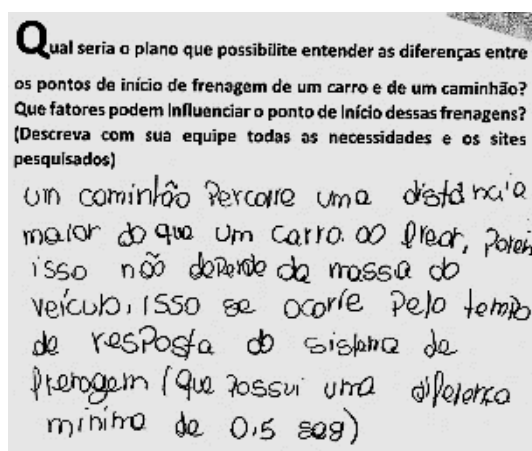 Qual seria o plano que possibilite entender as diferenças entre
os pontos de início de frenagem de um carro e de um caminhão?
Que fatores podem influenciar o ponto de início dessas frenagens?
(Descreva com sua equipe todas as necessidades e os sites
pesquisados)
um caminhão Percorre uma distância
maior do que um carro ao frear, Porém
isso não depende da massa do
veículo, isso se ocorre Pelo tempo
de resPosta do sistema de
frenagem (que Possui uma diferença
mínima de 0,5 seg)